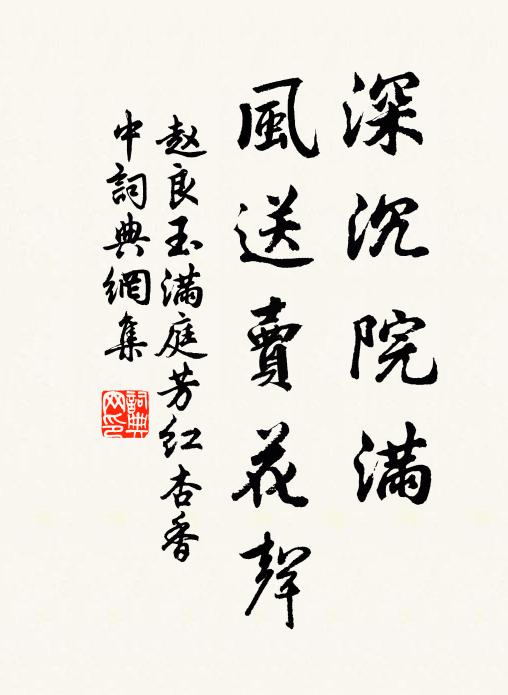 深沉院满
風送賣花聲
赵良玉满庭芳红杏香
中詞典網集
詞典
网印